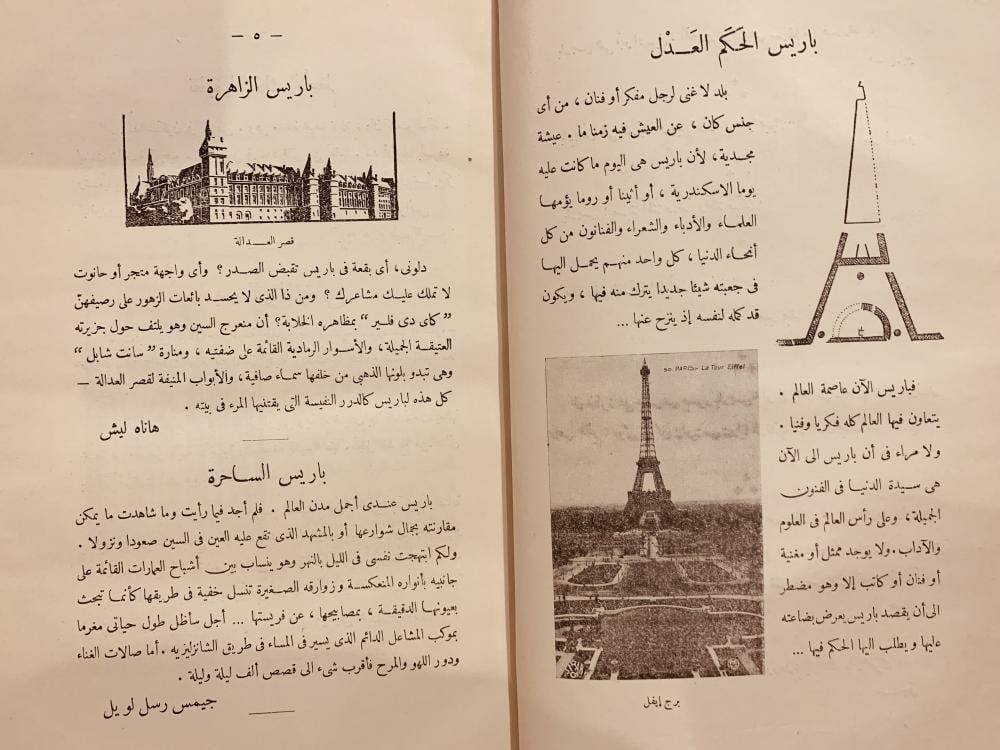 باريس الحَكَم العَـدْل
بلد لا غنى لرجل مفكر أو فنان ، من أى
جنس كان ، عن العيش فيه زمنا ما . عيشة
مجدية ، لأن باريس هى اليوم ما كانت عليه
يوما الاسكندرية ، أو أثينا أو روما يؤمها
العلماء والأدباء والشعراء والفنانون من كل
أنحاء الدنيا ، كل واحد منهم يحمل اليها
فى جعبته شيئا جديدا يترك منه فيها ، ويكون
قد كمله لنفسه إذ ينزح عنها ...
50. PARIS.- La Tour Eiffel
برج إيفل
فباريس الآن عاصمة العالم .
يتعاون فيها العالم كله فكريا وفنيا .
ولا مراء فى أن باريس الى الآن
هى سيدة الدنيا فى الفنون
الجميلة ، وعلى رأس العالم فى العلوم
والآداب . ولا يوجد ممثل أو مغنية
أو فنان أو كاتب إلا وهو مضطر
الى أن يقصد باريس يعرض بضاعته
عليها و يطلب اليها الحكم فيها ...
— ٥ —
باريس الزاهرة
قصر العـدالة
دلونى ، أى بقعة فى باريس تقبض الصدر ؟ وأى واجهة متجر أو حانوت
لا تملك عليك مشاعرك ؟ ومن ذا الذى لا يحسد بائعات الزهور على رصيفهنّ
”كاى دى فلير“ بمظاهره الخلابة ؟ أن منعرج السين وهو يلتف حول جزيرته
العتيقة الجميلة ، والأسوار الرمادية القائمة على ضفتيه ، ومنارة ”سانت شابل“
وهى تبدو بلونها الذهبى من خلفها سماء صافية ، والأبواب المنيفة لقصر العدالة —
كل هذه لباريس كالدرر النفيسة التى يقتنيها المرء فى بيته .
هاناه ليش
باريس الساحرة
باريس عندى أجمل مدن العالم . فلم أجد فيما رأيت وما شاهدت ما يمكن
مقارنته بجمال شوارعها أو بالمشهد الذى تقع عليه العين فى السين صعودا ونزولا .
ولكم ابتهجت نفسى فى الليل بالنهر وهو ينساب بين أشباح العمارات القائمة على
جانبيه بأنواره المنعكسة و زوارقه الصغيرة تنسل خفية فى طريقها كأنما تبحث
بعيونها الدقيقة ، بمصابيحها ، عن فريستها ... أجل سأظل طول حياتى مغرما
بموكب المشاعل الدائم الذى يسير فى المساء فى طريق الشانزليزيه . أما صالات الغناء
ودور اللهو والمرح فأقرب شىء الى قصص ألف ليلة وليلة .
جيمس رسل لويل